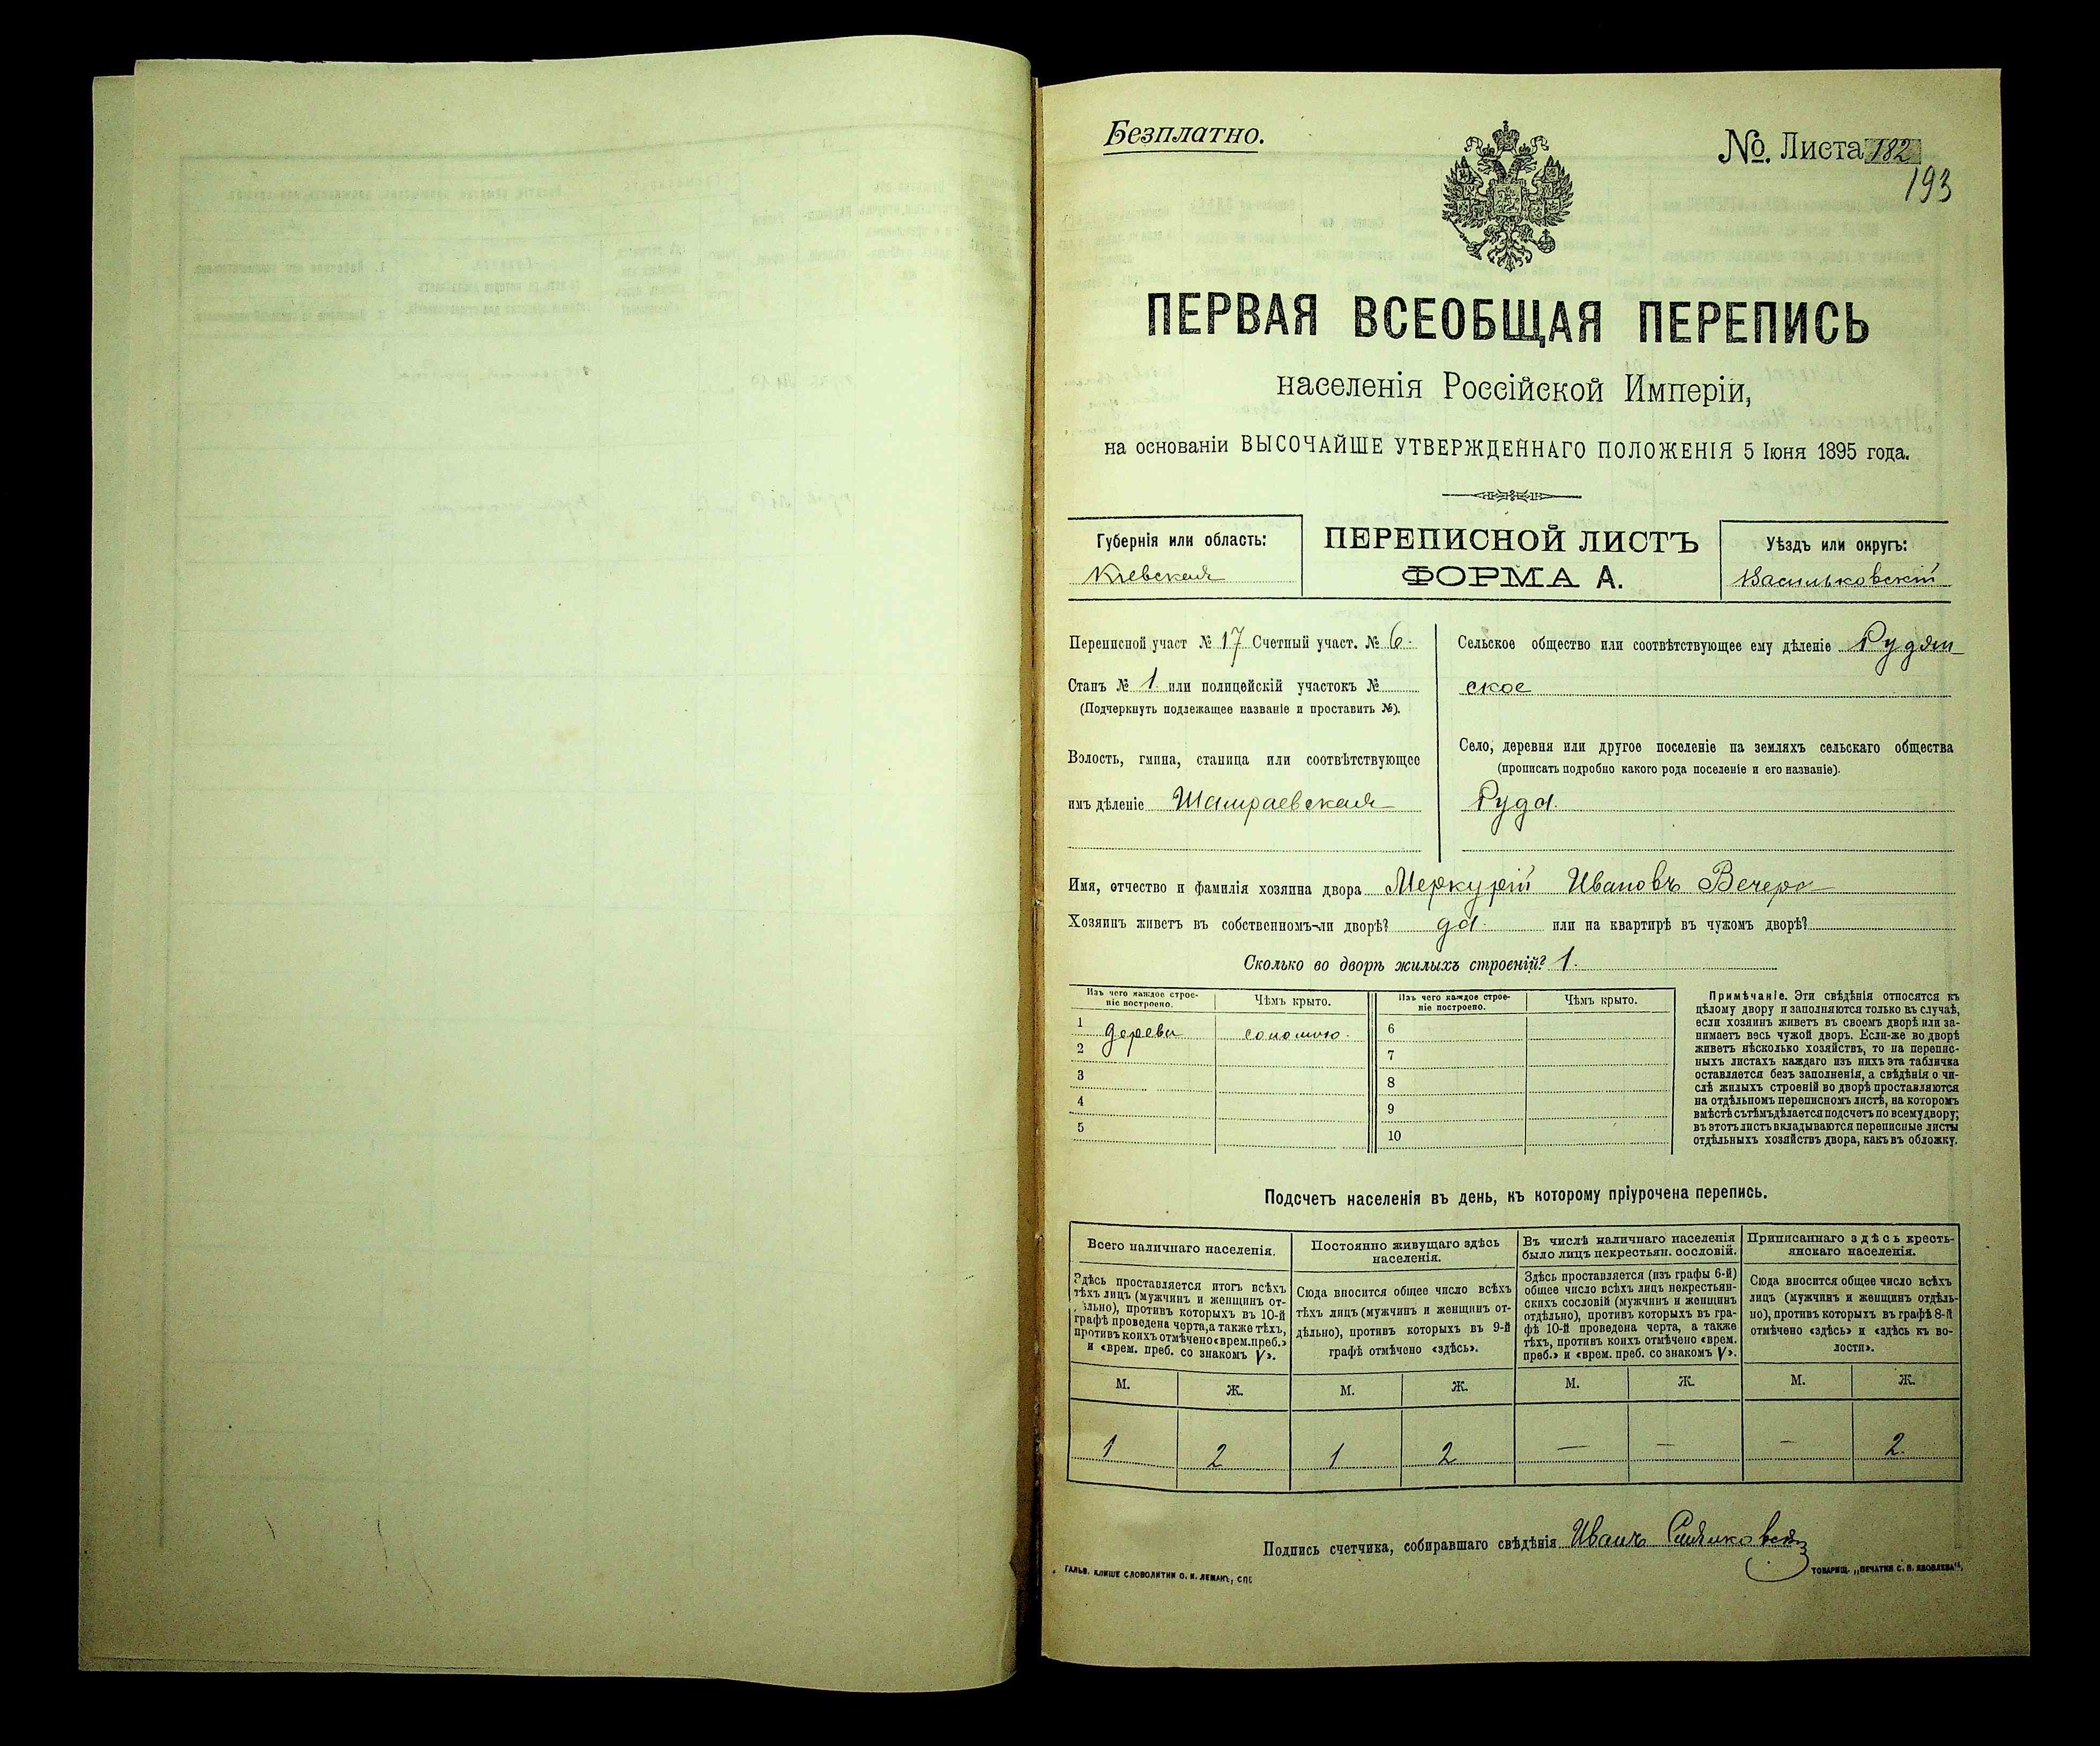 Безплатно.
№. Листа 182
193
ПЕРВАЯ ВСЕОБЩАЯ ПЕРЕПИСЬ
населенія Россійской Имперіи,
на основаніи ВЫСОЧАЙШЕ УТВЕРЖДЕННАГО ПОЛОЖЕНІЯ 5 Іюня 1895 года.
Губернія или область:
Кіевская
ПЕРЕПИСНОЙ ЛИСТЪ
ФОРМА А.
Уѣздъ или округъ:
Васильковскій
Переписной участ № 17 Счетный участ. № 6.
Станъ № 1 или полицейскій участокъ №
(Подчеркнуть подлежащее названіе и проставить №).
Волость, гмина, станица или соотвѣтствующее
имъ дѣленіе Шамраевская
Сельское общество или соотвѣтствующее ему дѣленіе Рудян
ское
Село, деревня или другое поселеніе на земляхъ сельскаго общества
(прописать подробно какого рода поселеніе и его названіе).
Руда.
Имя, отчество и фамилія хозяина двора Меркурій Ивановъ Вечера
Хозяинъ живетъ въ собственномъ-ли дворѣ? да. или на квартирѣ въ чужомъ дворѣ?
Сколько во дворѣ жилыхъ строеній? 1.
Изъ чего каждое строе-
ніе построено.
Чѣмъ крыто.
1 дерева соломою.
2
3
4
5
Изъ чего каждое строе-
ніе построено.
Чѣмъ крыто.
6
7
8
9
10
Примѣчаніе. Эти свѣдѣнія относятся къ
цѣлому двору и заполняются только въ случаѣ,
если хозяинъ живетъ въ своемъ дворѣ или за-
нимаетъ весь чужой дворъ. Если-же во дворѣ
живетъ нѣсколько хозяйствъ, то на перепис-
ныхъ листахъ каждаго изъ нихъ эта табличка
оставляется безъ заполненія, а свѣдѣнія о чи-
слѣ жилыхъ строеній во дворѣ проставляются
на отдѣльномъ переписномъ листѣ, на которомъ
вмѣстѣ съ тѣмъ дѣлается подсчетъ по всему двору;
въ этотъ листъ вкладываются переписные листы
отдѣльныхъ хозяйствъ двора, какъ въ обложку.
Подсчетъ населенія въ день, къ которому пріурочена перепись.
Всего наличнаго населенія.
Здѣсь проставляется итогъ всѣхъ
тѣхъ лицъ (мужчинъ и женщинъ от-
дѣльно), противъ которыхъ въ 10-й
графѣ проведена черта, а также тѣхъ,
противъ коихъ отмѣчено «врем. преб.»
и «врем. преб. со знакомъ V».
Постоянно живущаго здѣсь
населенія.
Сюда вносится общее число всѣхъ
тѣхъ лицъ (мужчинъ и женщинъ от-
дѣльно), противъ которыхъ въ 9-й
графѣ отмѣчено «здѣсь».
Въ числѣ наличнаго населенія
было лицъ некрестьян. сословій.
Здѣсь проставляется (изъ графы 6-й)
общее число всѣхъ лицъ некрестьян-
скихъ сословій (мужчинъ и женщинъ
отдѣльно), противъ которыхъ въ гра-
фѣ 10-й проведена черта, а также
тѣхъ, противъ коихъ отмѣчено «врем.
преб.» и «врем. преб. со знакомъ V».
Приписаннаго здѣсь кресть-
янскаго населенія.
Сюда вносится общее число всѣхъ
лицъ (мужчинъ и женщинъ отдѣль-
но), противъ которыхъ въ графѣ 8-й
отмѣчено «здѣсь» и «здѣсь къ во-
лости».
М. Ж. М. Ж. М. Ж. М. Ж.
1 2 1 2 — — — 2.
Подпись счетчика, собиравшаго свѣдѣнія Иванъ
ГАЛЬВ. КЛИШЕ СЛОВОЛИТНИ О. И. ЛЕМАНЪ, СПБ
ТОВАРИЩ. „ПЕЧАТНЯ С. П. ЯКОВЛЕВА“.